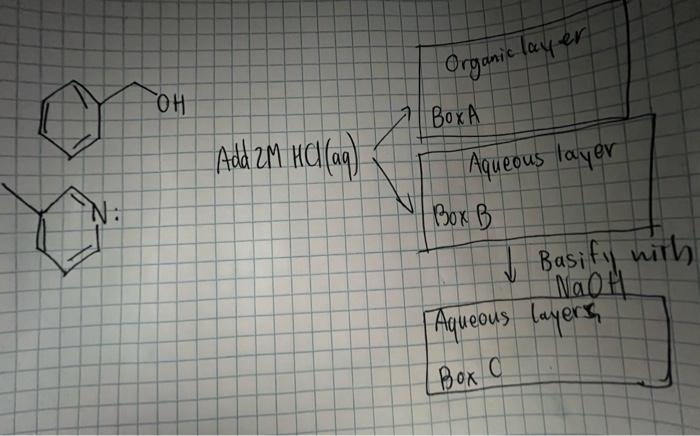 OH
N:
Add 2M HCl(aq)
Organic layer
Box A
Aqueous layer
Box B
Basify with
NaOH
Aqueous layers
Box C